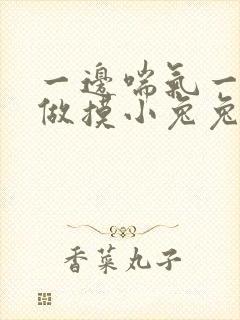 一邊喘氣一
做摸小兔兔
香菜丸子